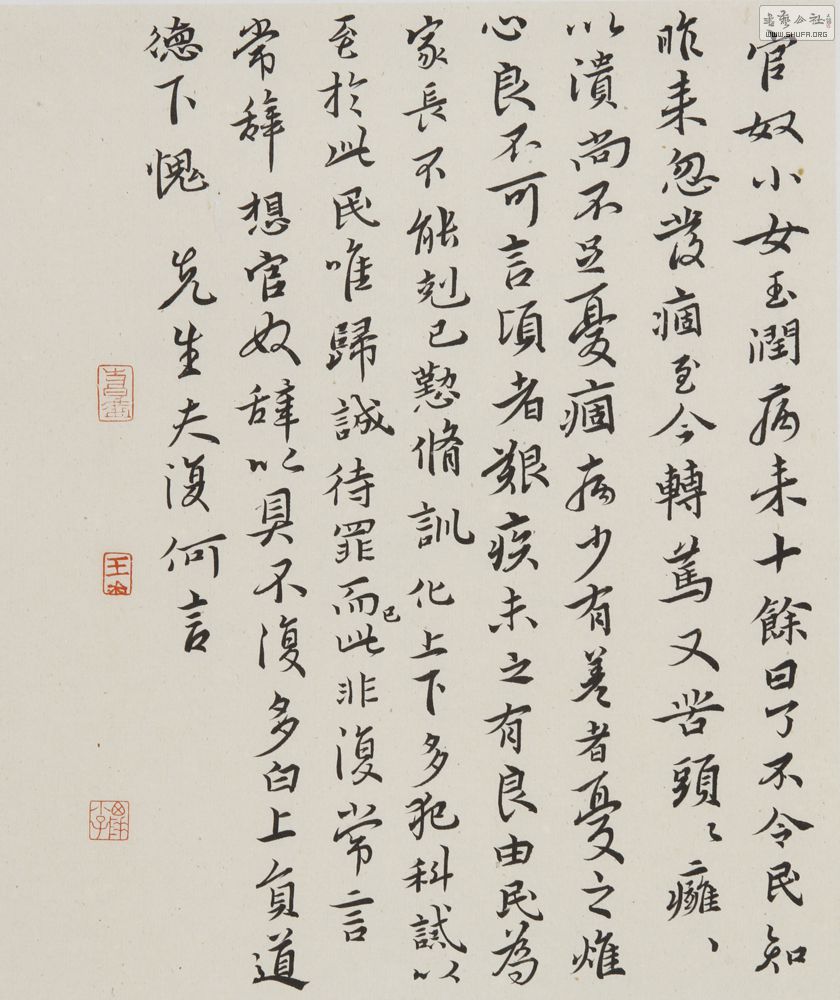 官奴小女玉潤病来十餘日了不令民知
昨来忽發痼至今轉篤又苦頭〻癰〻
以潰尚不足憂痼病少有差者憂之燋
心良不可言頃者艱疾未之有良由民為
家長不能剋己懃脩訓化上下多犯科誡以
至於此民唯歸誠待罪而已此非復常言
常辞想官奴辞以具不復多白上負道
德下愧 先生夫復何言
書藝公社
WWW.SHUFA.ORG